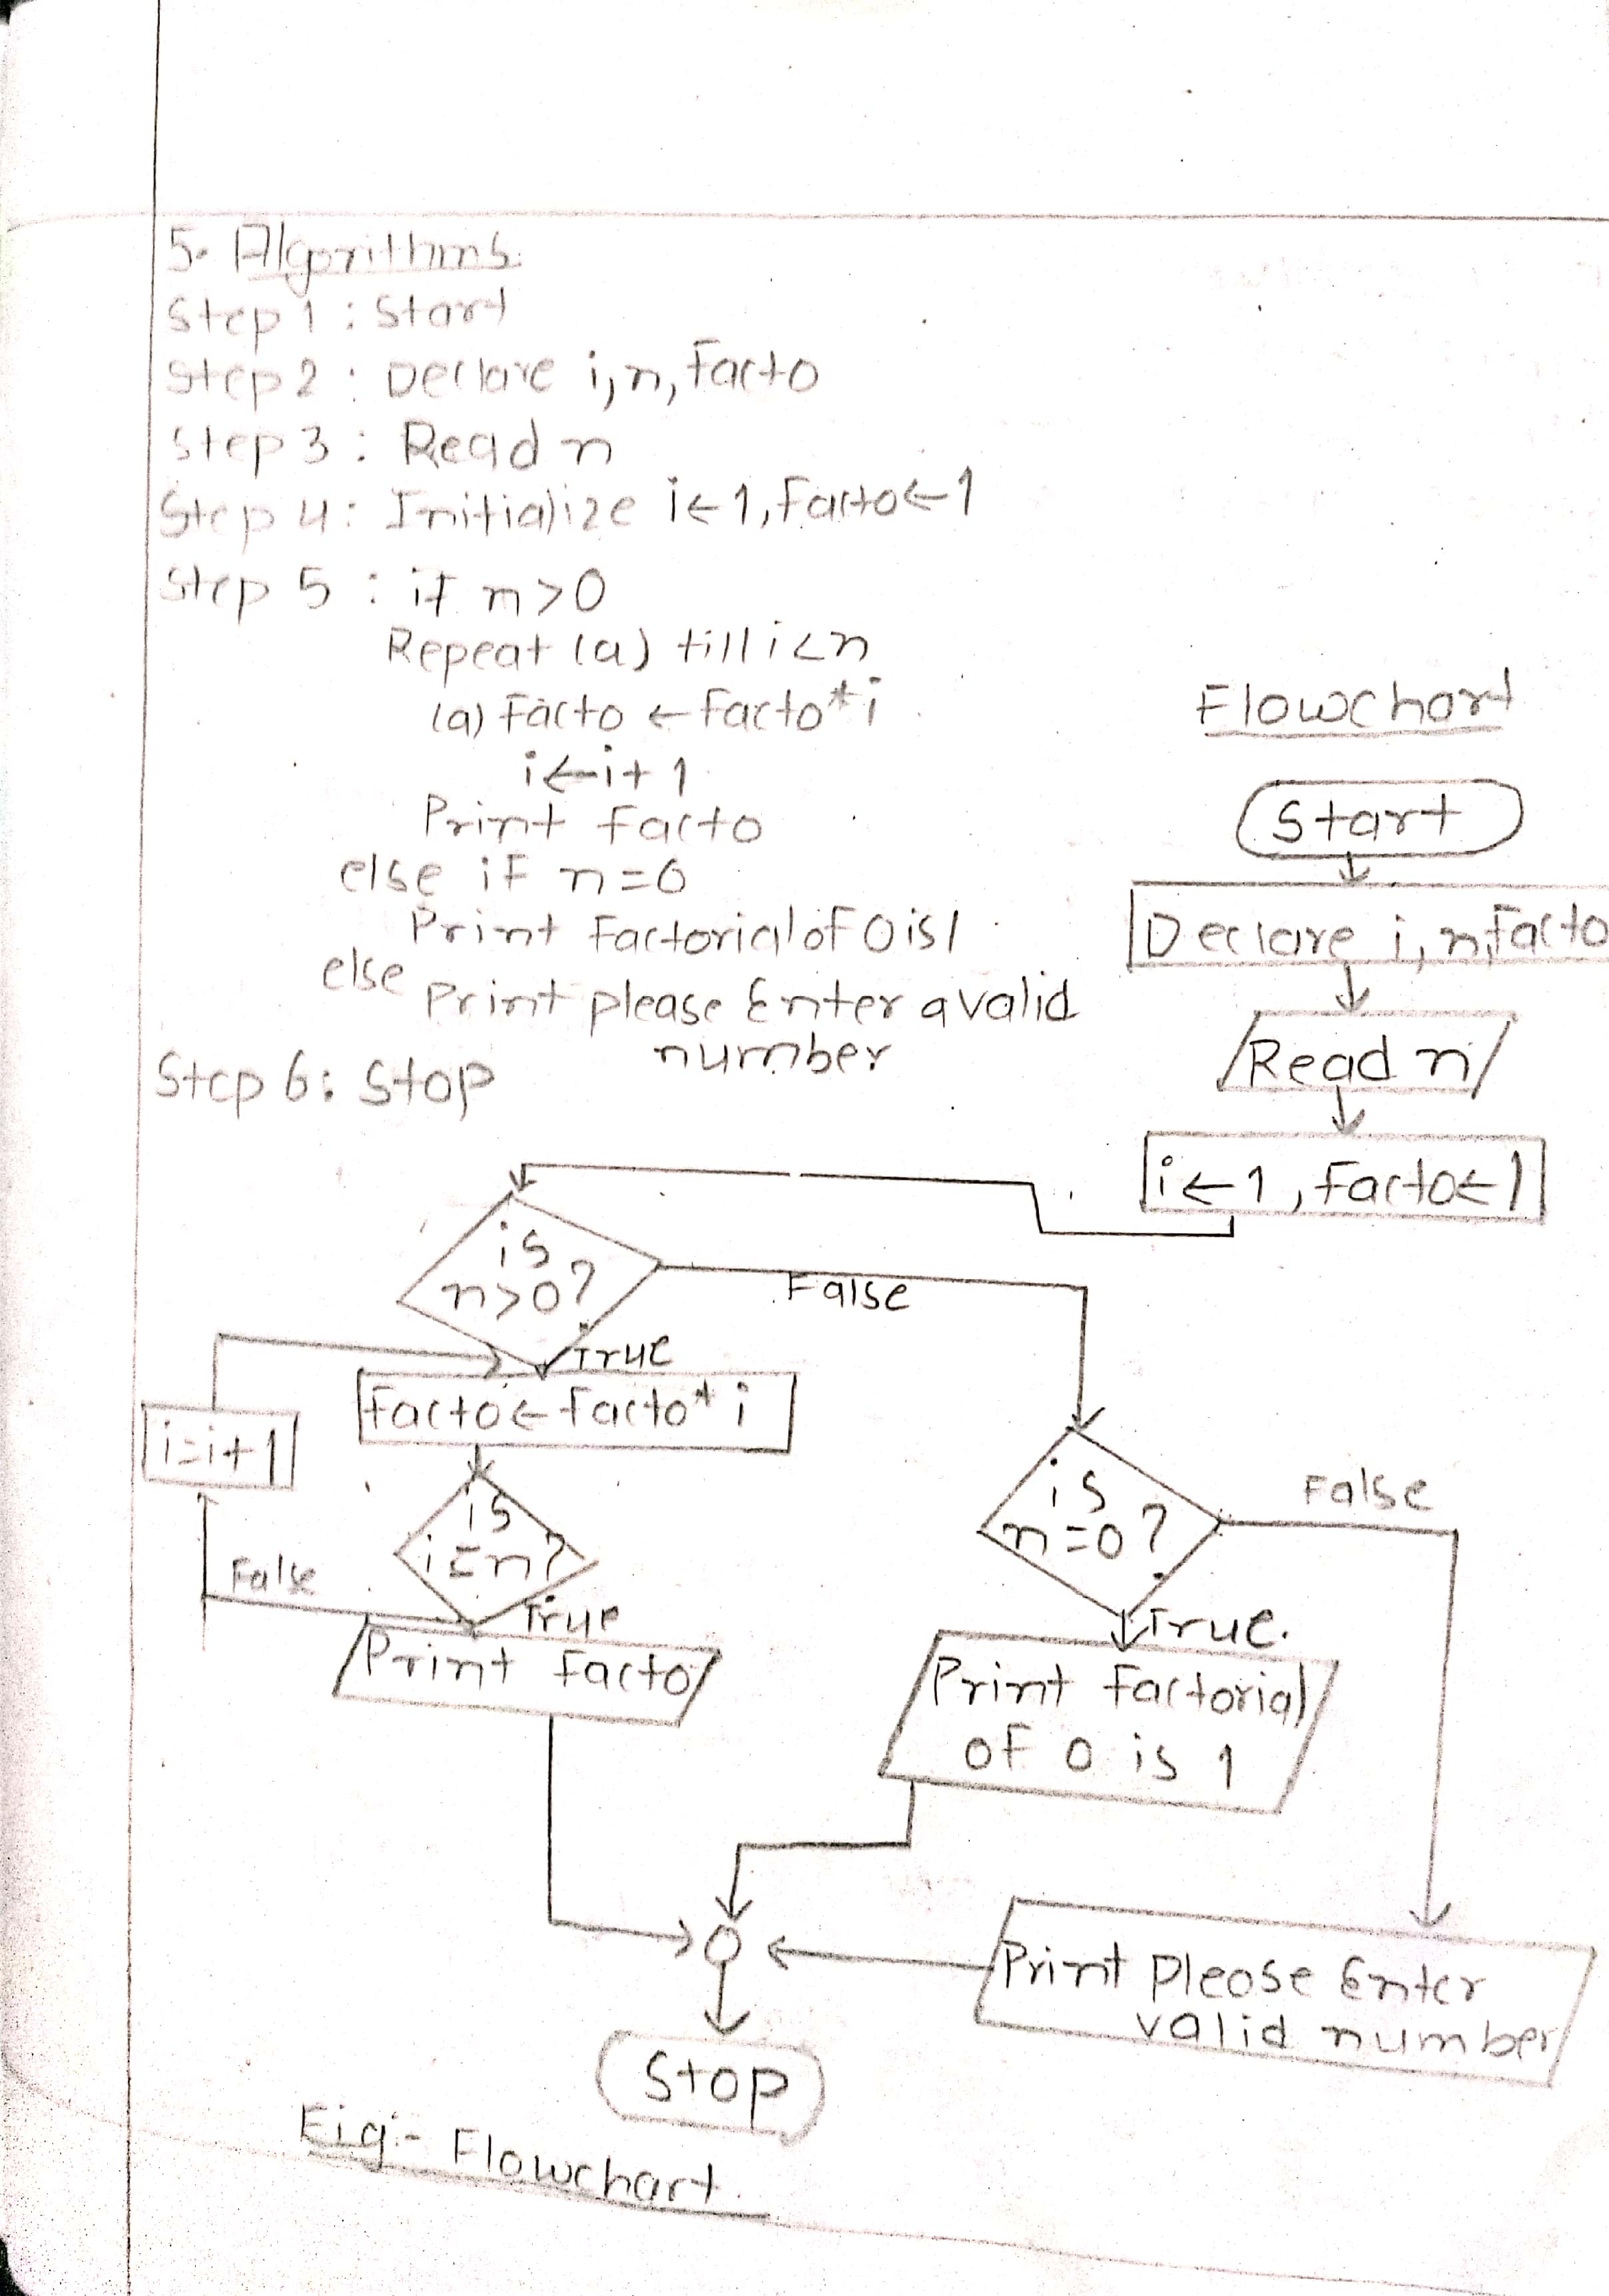 5. Algorithms.
Step 1 : Start
Step 2 : Declare i, n, Facto
Step 3 : Read n
Step 4 : Initialize i ← 1, Facto ← 1
Step 5 : if n > 0
Repeat (a) till i < n
(a) Facto ← Facto * i
i ← i + 1
Print facto
else if n = 0
Print Factorial of 0 is 1
else
Print please Enter a valid
number
Step 6 : Stop
Flowchart
Start
Declare i, n, Facto
Read n
i ← 1, Facto ← 1
is
n > 0 ?
False
True
facto ← facto * i
i = i + 1
is
i = n ?
False
True
Print facto
is
n = 0 ?
False
True.
Print factorial
of 0 is 1
Print Please Enter
valid number
Stop
Fig:- Flowchart.